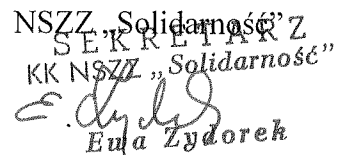 NSZZ „Solidarność”
SEKRETARZ
KK NSZZ „Solidarność”
E. Zydorek
Ewa Zydorek